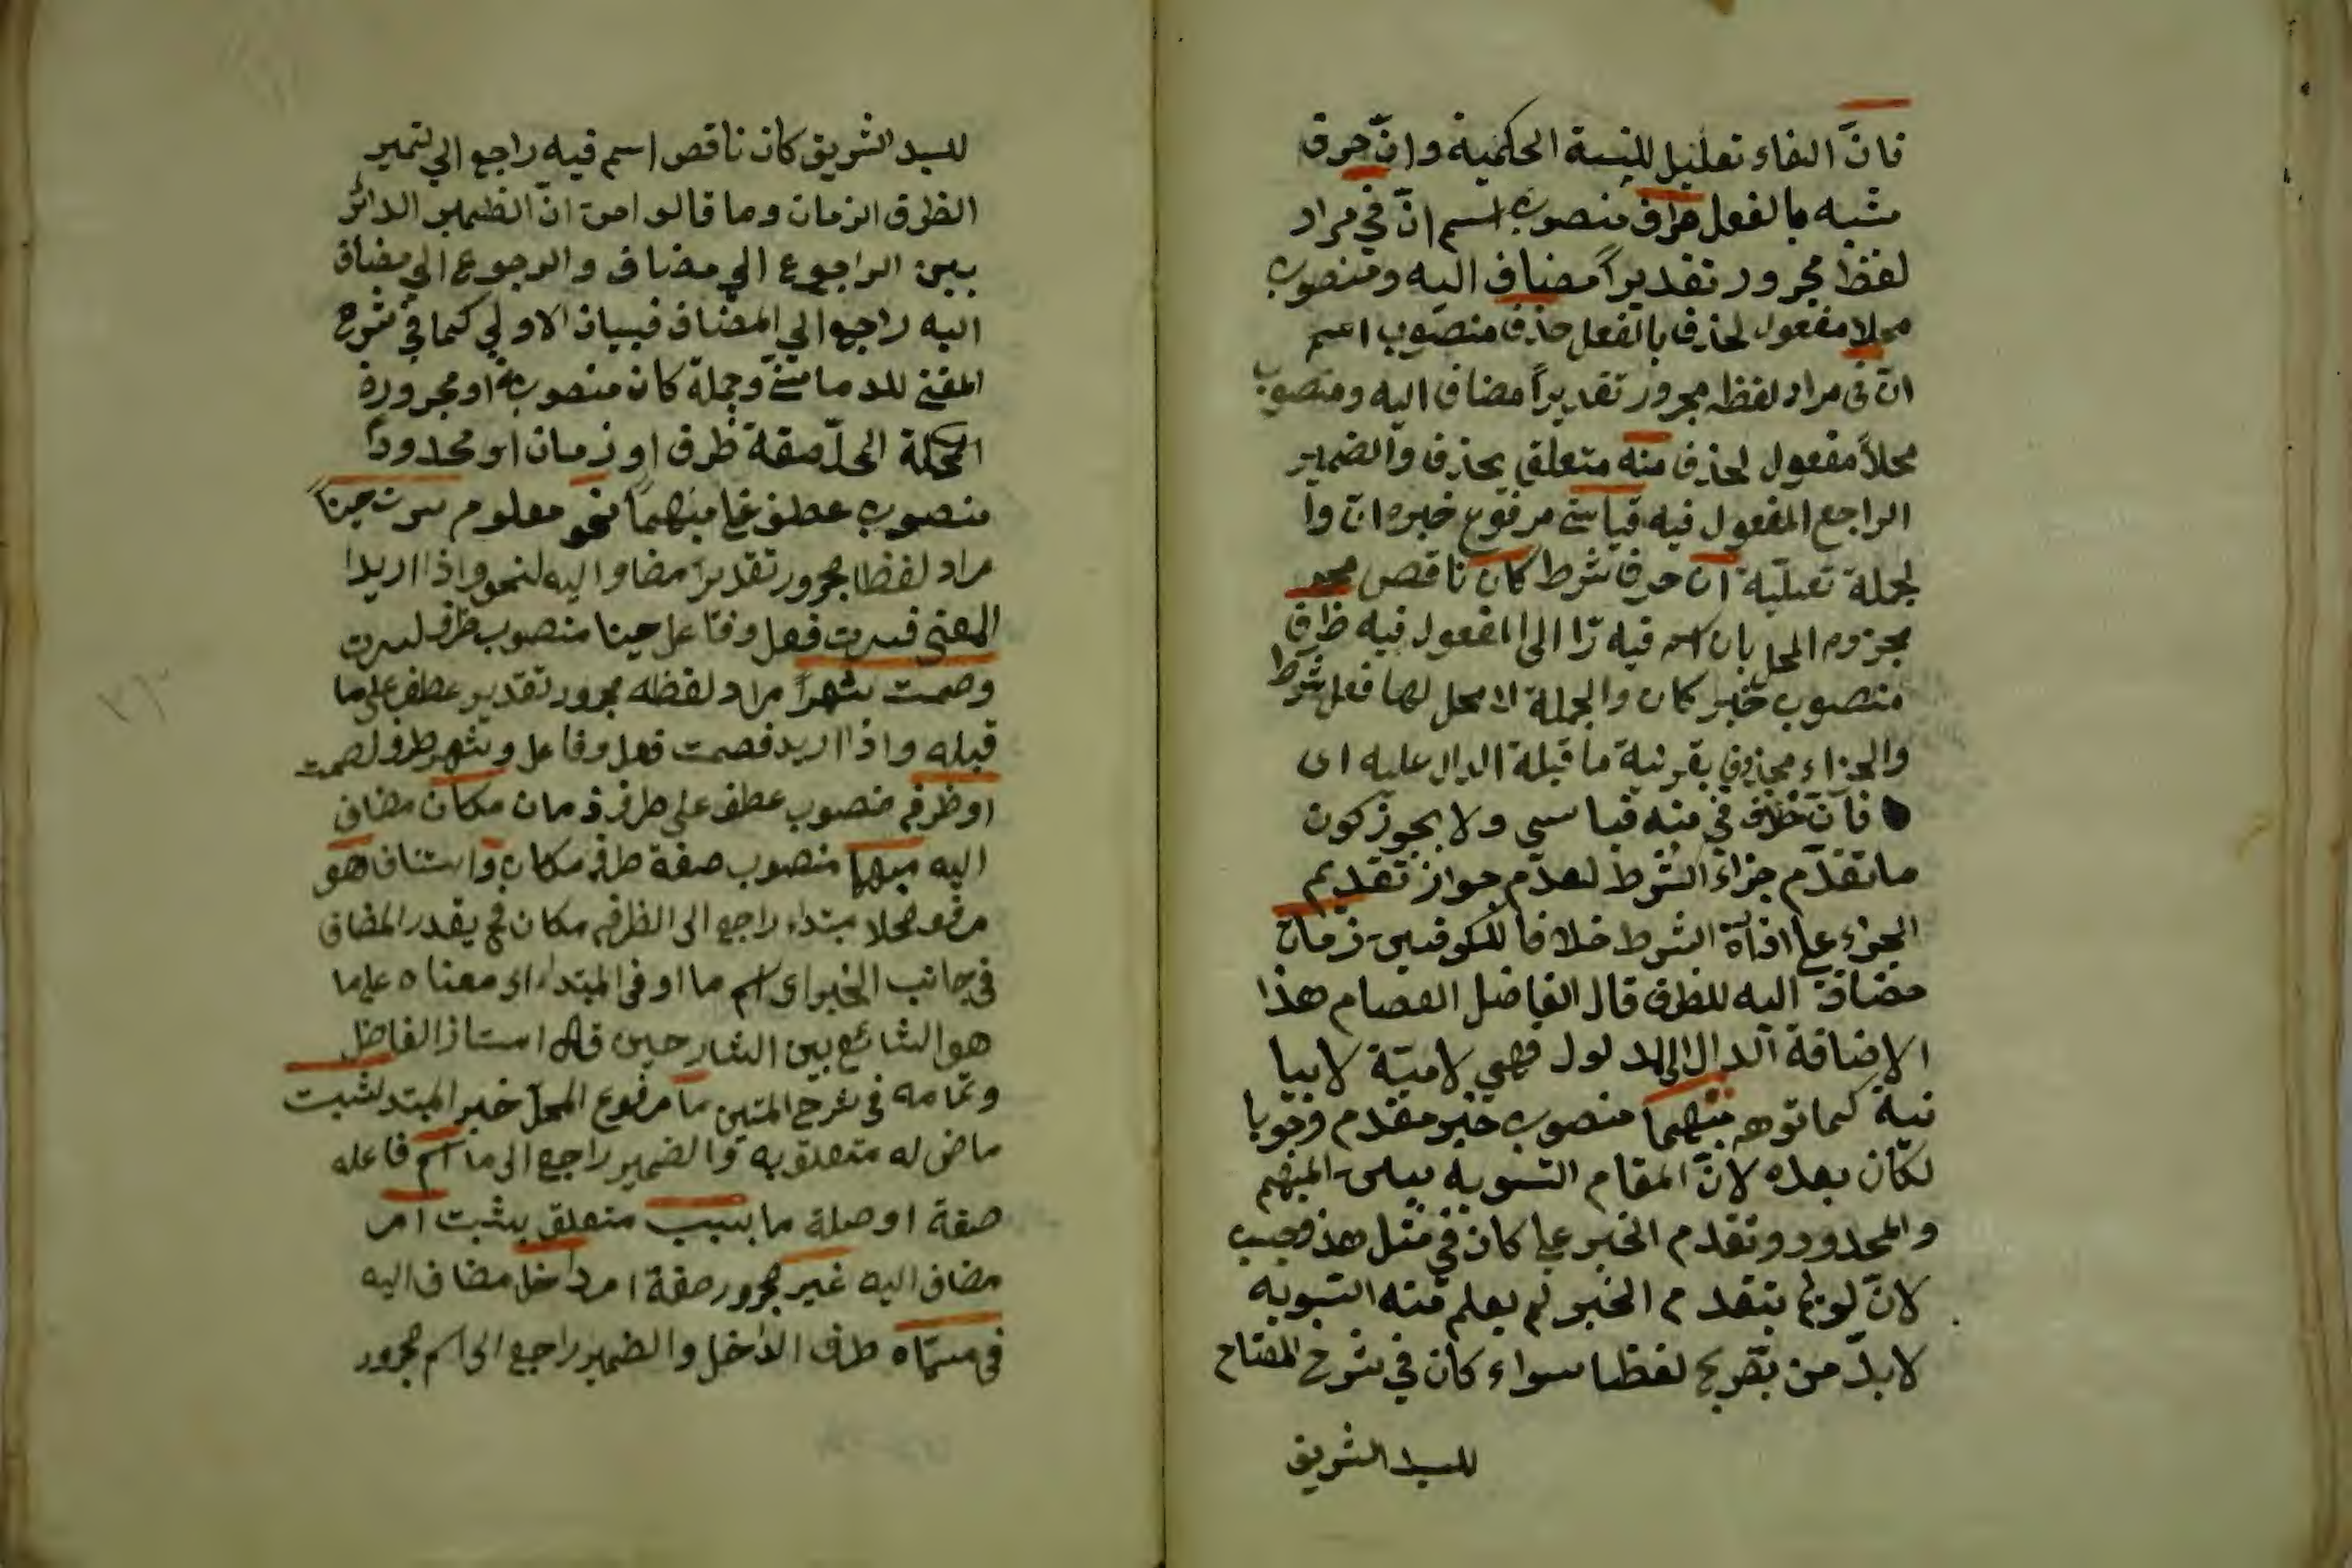 فانّ الفاء تعليل للنسبة الحكمية وانّ حرف
مشبه بالفعل حذف منصوب اسم انّ في مراد
لفظ مجرور تقديراً مضاف اليه ومنصوب
محلا مفعول لحذف بالفعل حذف منصوب اسم
ان في مراد لفظه مجرور تقديراً مضاف اليه ومنصوب
محلاً مفعول لحذف منه متعلق بحذف والضمير
الراجع المفعول فيه قياسي مرفوع خبره ان وا
لجملة تعليلية ان حرف شرط كان ناقص
مجزوم المحل بان اسم فيه را الى المفعول فيه ظرف
منصوب خبر كان والجملة لا محل لها فعل شرط
والجزاء محذوف بقرينة ما قبلة الدال عليه اى
فانّ حذف في منه قياسي ولا يجوز كون
ما تقدّم جزاء الشرط لعدم جواز تقديم
الجزاء على اداة الشرط خلافا للكوفيين زمان
مضاف اليه للظرف قال الفاضل العصام هذا
الاضافة الدال الى المدلول فهي لامية لا بيا
نية كما توهم مبهما منصوب خبر مقدم وجوبا
لكان بعده لانّ المقام التسوية بين المبهم
والمحدود وتقدم الخبر على كان في مثل هذ
لانّ لو لم يتقدم الخبر لم يعلم منه التسوية
لا بدّ من تصريح لفظا سواء كان في شرح المفتاح
للسيد الشريف
للسيد الشريف كان ناقص اسم فيه راجع الى
الظرف الزمان وما قالوا من انّ الضمير الدائر
بين الراجوع الى مضاف والرجوع الى مضاف
اليه راجع الى المضاف فبيان الاولى كما في شرح
المغني للدماميني وجملة كان منصوبة او مجرورة
المحل صفة ظرف او زمان او محدوداً
منصوب عطف على مبهماً نحو معلوم سرت حيناً
مراد لفظا مجرور تقديراً مضاف اليه لنحو واذا اريد ا
المعنى فسرت فعل وفاعل حينا منصوب ظرف لسرت
وصمت شهراً مراد لفظه مجرور تقدير عطف على ما
قبله واذا اريد فصمت فعل وفاعل وشهر ظرف لصمت
او ظرف منصوب عطف على ظرف زمان مكان مضاف
اليه مبهما منصوب صفة ظرف مكان واستناف هو
مرفوع محلا مبتداء راجع الى الظرف مكان فح يقدر المضاف
في جانب الخبر اى اسم ما او في المبتداء اى معناه على ما
هو الشائع بين الشارحين قال استاذ الفاضل
وتمامه في شرح المتين ما مرفوع المحل خبر المبتد لثبت
ماض له متعلق به والضمير راجع الى ما اسم فاعله
صفة او صلة ما بسبب متعلق بثبت امر
مضاف اليه غير مجرور صفة امر داخل مضاف اليه
في مسمّاه ظرف الداخل والضمير راجع الى اسم مجرور